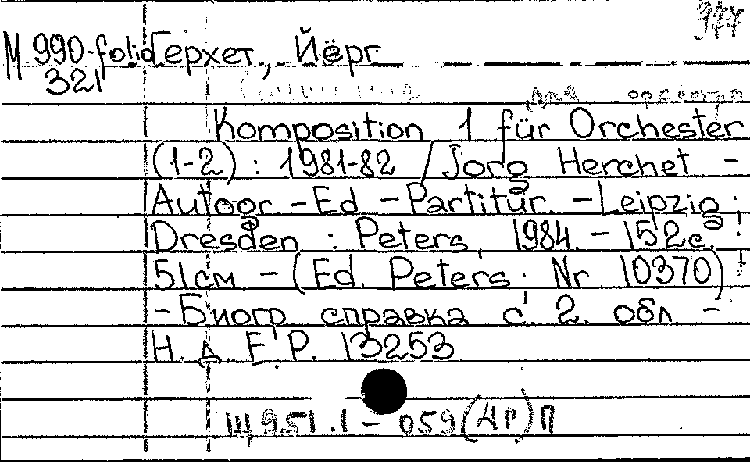 377
М 990-folio Герхет, Йёрг
321
для оркестра
Komposition 1 für Orchester
(1-2) : 1981-82 / Jorg Herchet -
Autogr - Ed - Partitur. - Leipzig ;
Dresden : Peters, 1984. - 152 с. ;
51 см - (Ed. Peters ; Nr 10370)
- Биогр справка с 2 обл -
Н. д. E.P. 13253
Щ 951.1 - 059(4Г)П